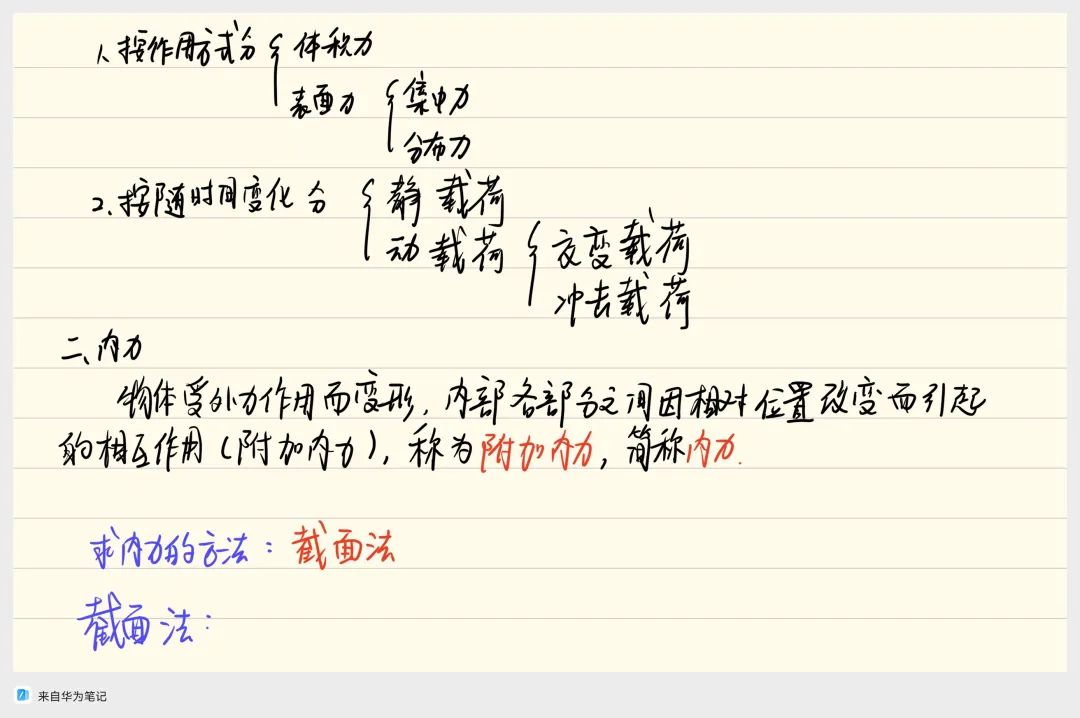 1、按作用方式分 体积力
表面力 集中力
分布力
2、按随时间变化分 静载荷
动载荷 交变载荷
冲击载荷
二、内力
物体受外力作用而变形，内部各部分之间因相对位置改变而引起
的相互作用（附加内力），称为附加内力，简称内力.
求内力的方法：截面法
截面法：
来自华为笔记